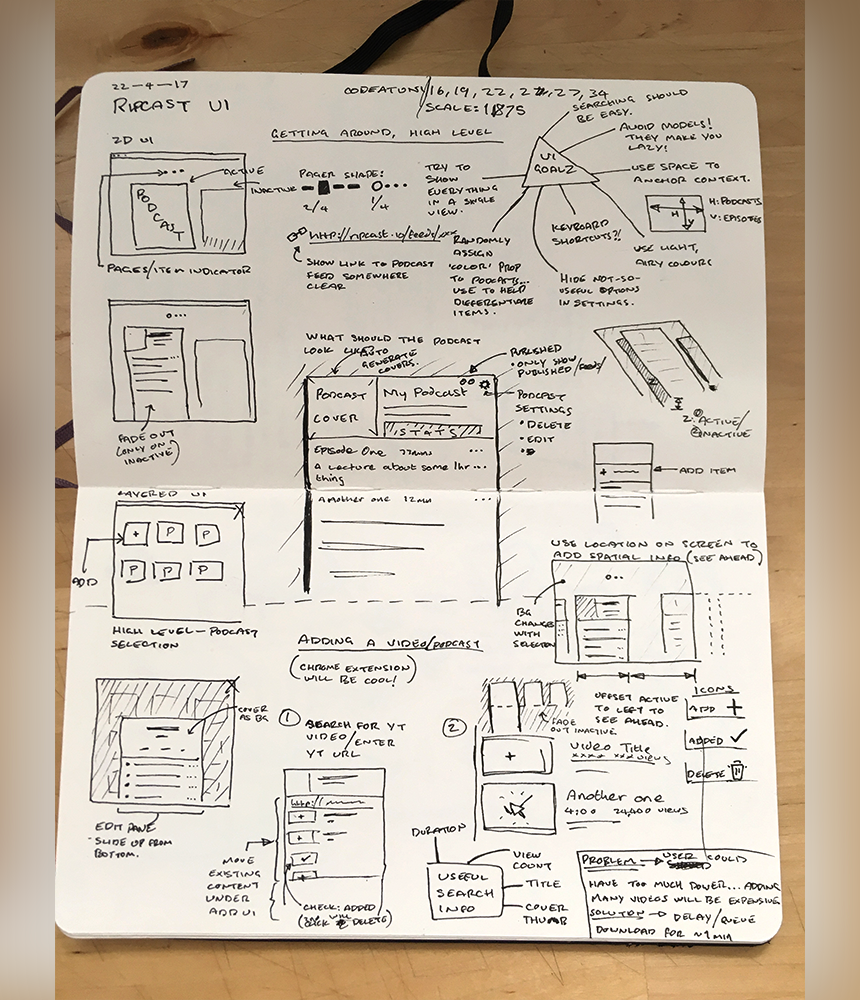 22-4-17
RIPCAST UI
SCALE: 1.875
GETTING AROUND, HIGH LEVEL
2D UI
ACTIVE
INACTIVE
PODCAST
PAGES/ITEM INDICATOR
PAGER SHADE:
2/4
1/4
SHOW LINK TO PODCAST
FEED SOMEWHERE
CLEAR
UI
GOALZ
SEARCHING SHOULD
BE EASY.
AVOID MODELS!
THEY MAKE YOU
LAZY!
USE SPACE TO
ANCHOR CONTEXT.
H: PODCASTS
V: EPISODES
H
V
USE LIGHT,
AIRY COLOURS
KEYBOARD
SHORTCUTS?!
HIDE NOT-SO-
USEFUL OPTIONS
IN SETTINGS.
TRY TO
SHOW
EVERYTHING
IN A SINGLE
VIEW.
RANDOMLY
ASSIGN
'COLOR' PROP
TO PODCASTS...
USE TO HELP
DIFFERENTIATE
ITEMS.
FADE OUT
(ONLY ON
INACTIVE)
WHAT SHOULD THE PODCAST
LOOK LIKE?
AUTO
GENERATE
COVERS.
PODCAST
COVER
My Podcast
STATS
Episode One 77min
A Lecture about some
thing
Another one 12min
PUBLISHED
• ONLY SHOW
PUBLISHED/
PODCAST
SETTINGS
• DELETE
• EDIT
Z: ACTIVE/
INACTIVE
+
ADD ITEM
LAYERED UI
X
+ P P
P P P
ADD
HIGH LEVEL — PODCAST
SELECTION
USE LOCATION ON SCREEN TO
ADD SPATIAL INFO (SEE AHEAD)
BG
CHANGE
WITH
SELECTION
OFFSET ACTIVE
TO LEFT TO
SEE AHEAD.
ICONS
ADD +
ADDED ✓
DELETE
ADDING A VIDEO/PODCAST
(CHROME EXTENSION
WILL BE COOL!)
X
COVER
AS BG
EDIT PANE
- SLIDE UP FROM
BOTTOM.
① SEARCH FOR YT
VIDEO/ENTER
YT URL
http://
+
+
✓
+
MOVE
EXISTING
CONTENT
UNDER
ADD UI
CHECK: ADDED
DELETE)
②
FADE
OUT INACTIVE.
+
Video Title
xxxx xxx views
Another one
4:00 24,400 views
DURATION
VIEW
COUNT
USEFUL
SEARCH
INFO
TITLE
COVER
THUMB
PROBLEM → USER COULD
HAVE TOO MUCH POWER... ADDING
MANY VIDEOS WILL BE EXPENSIVE
SOLUTION → DELAY/QUEUE
DOWNLOAD FOR ~1 MIN